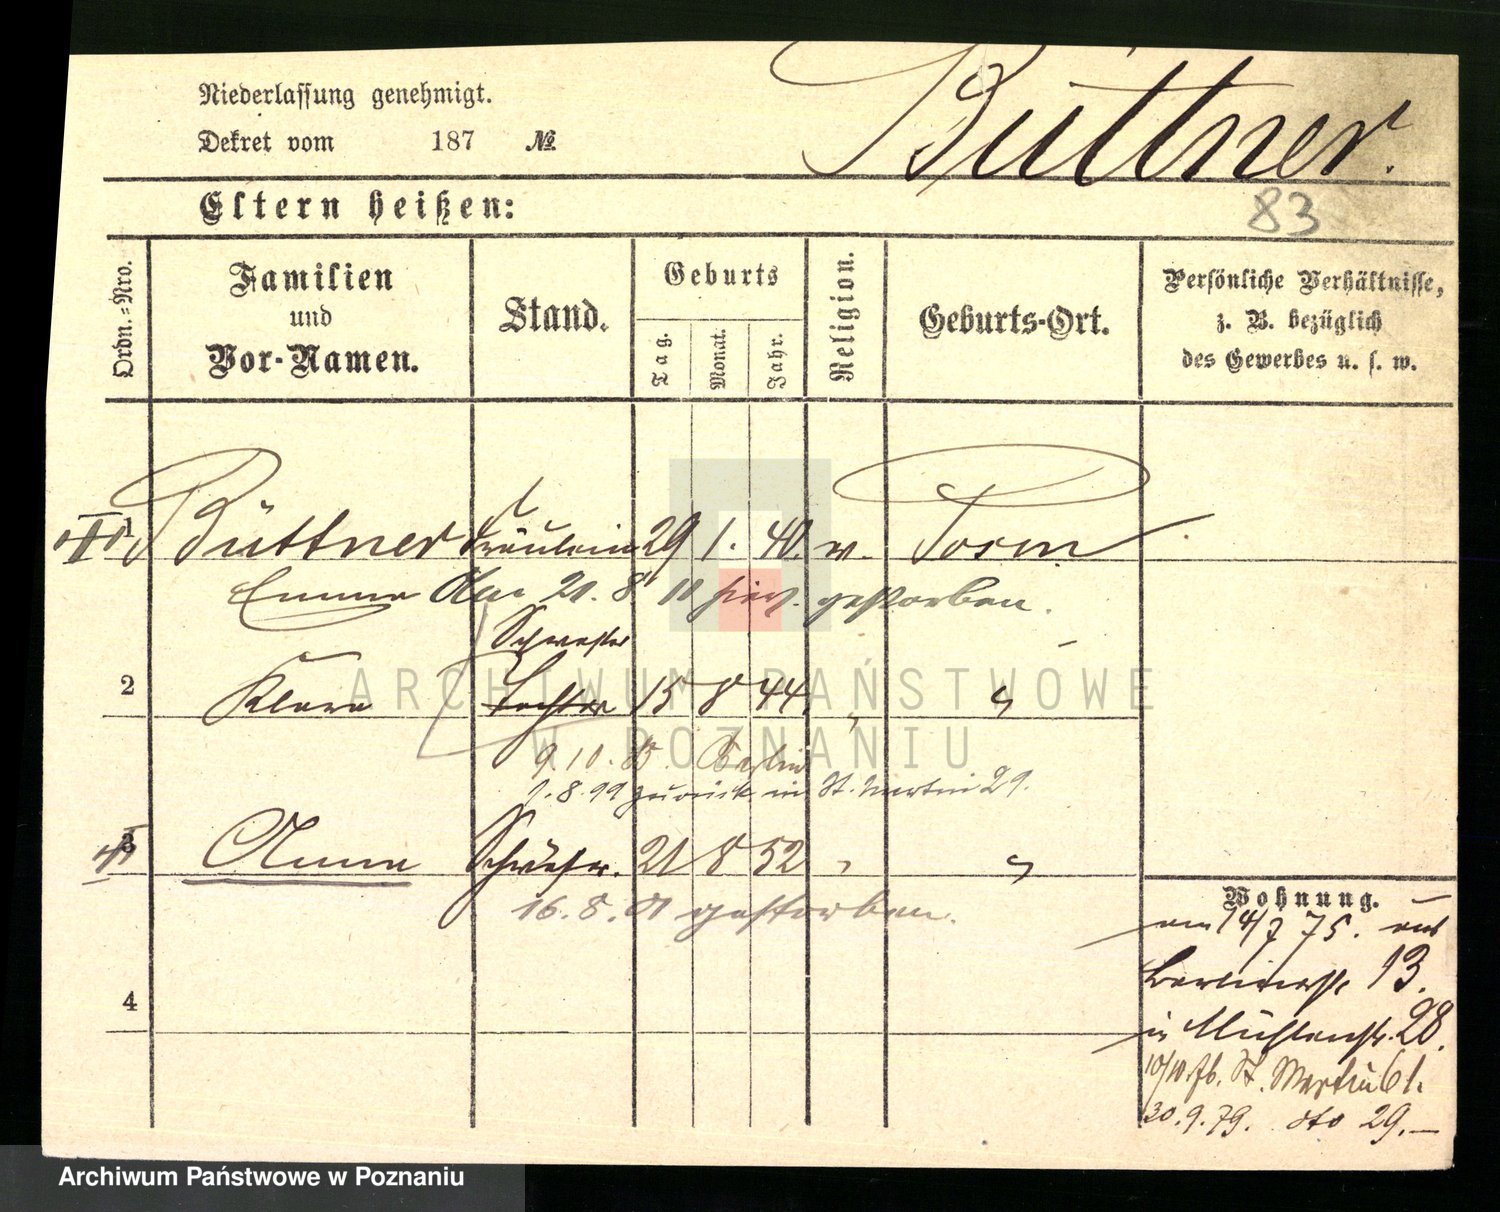 Niederlassung genehmigt.
Dekret vom 187 №
Büttner.
Eltern heißen:
83
Ordn.-Nro.
Familien und Vor-Namen.
Stand.
Geburts
Tag. Monat. Jahr.
Religion.
Geburts-Ort.
Persönliche Verhältnisse, z. B. bezüglich des Gewerbes u. s. w.
1 Büttner Fräulein 29 1. 40 Posen
Emma 8 10 hier gestorben.
Schwester
2 Klara Tochter 15 8 44 "
9.10. Berlin
1.8.99 zurück in St. Martin 29.
3 Anna Schwester. 21 8 52 " "
16.8.01 gestorben.
4
Wohnung.
am 14/7 75. aus
Berlinerstr 13.
in Mühlenstr. 28.
10/10.76. St. Martin 61.
30.9.79. dto 29.—
ARCHIWUM PAŃSTWOWE
W POZNANIU
Archiwum Państwowe w Poznaniu